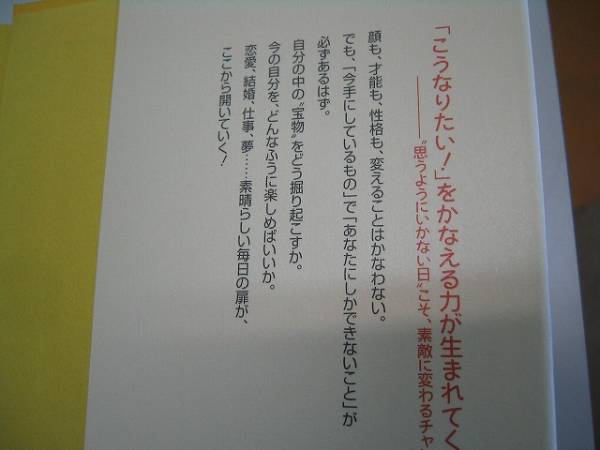 「こうなりたい！」をかなえる力が生まれてく
――〝思うようにいかない日〟こそ、素敵に変わるチャ
顔も、才能も、性格も、変えることはかなわない。
でも、「今手にしているもの」で「あなたにしかできないこと」が
必ずあるはず。
自分の中の〝宝物〟をどう掘り起こすか。
今の自分を、どんなふうに楽しめばいいか。
恋愛、結婚、仕事、夢……素晴らしい毎日の扉が、
ここから開いていく！